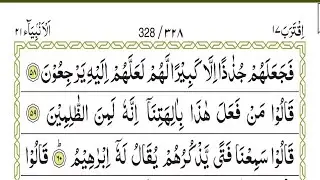 اِقْتَرَبَ ١٧ 328/٣٢٨ اَلْاَنْبِيَآء ٢١
فَجَعَلَهُمْ جُذٰذًا اِلَّا كَبِيْرًا لَّهُمْ لَعَلَّهُمْ اِلَيْهِ يَرْجِعُوْنَ ۝٥٨
قَالُوْا مَنْ فَعَلَ هٰذَا بِاٰلِهَتِنَاۤ اِنَّهٗ لَمِنَ الظّٰلِمِيْنَ ۝٥٩
قَالُوْا سَمِعْنَا فَتًى يَّذْكُرُهُمْ يُقَالُ لَهٗۤ اِبْرٰهِيْمُ ۝٦٠ؕ قَالُوْا